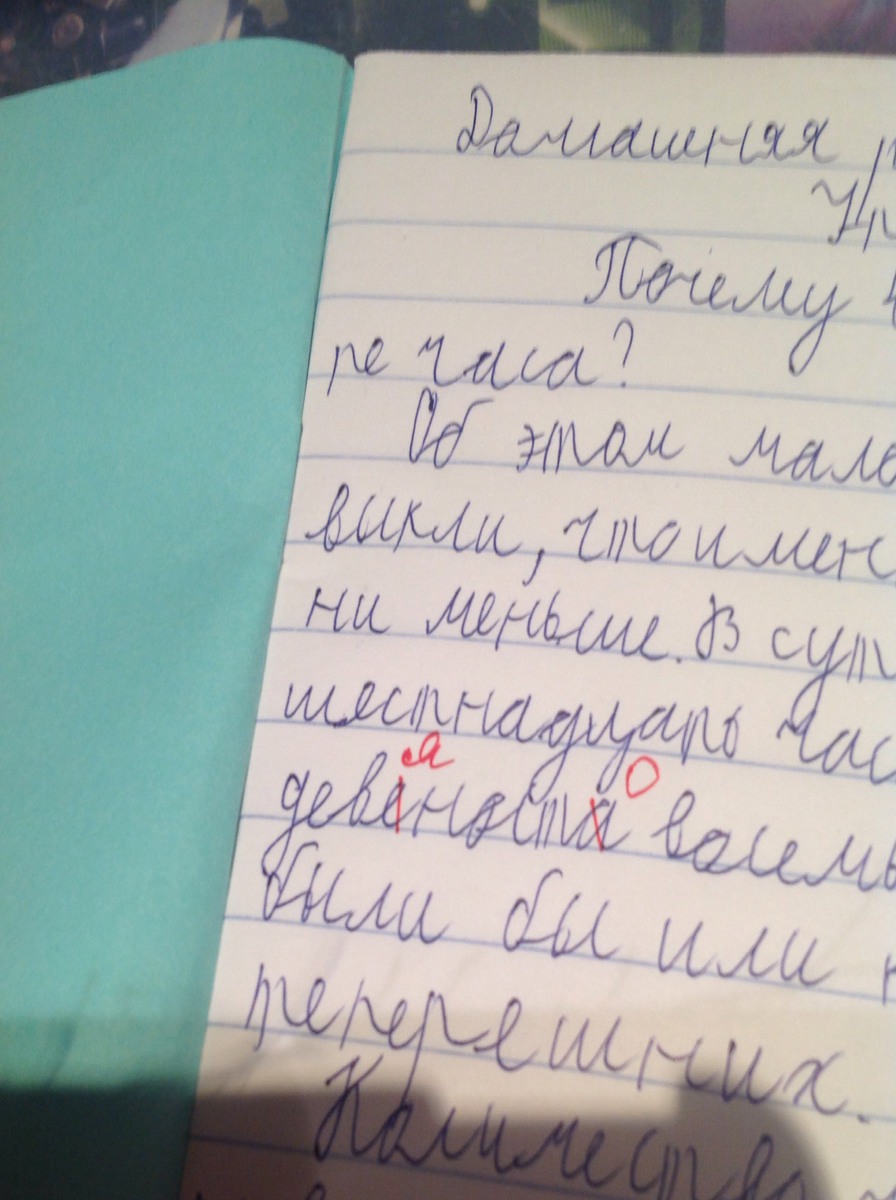 Домашняя р
Уп
Почему
ре часа?
Об этом мало
выкли, что имен
ни меньше. В сут
шестнадцать час
я о
девеноста восемь
были бы или
теперешних.
Количество